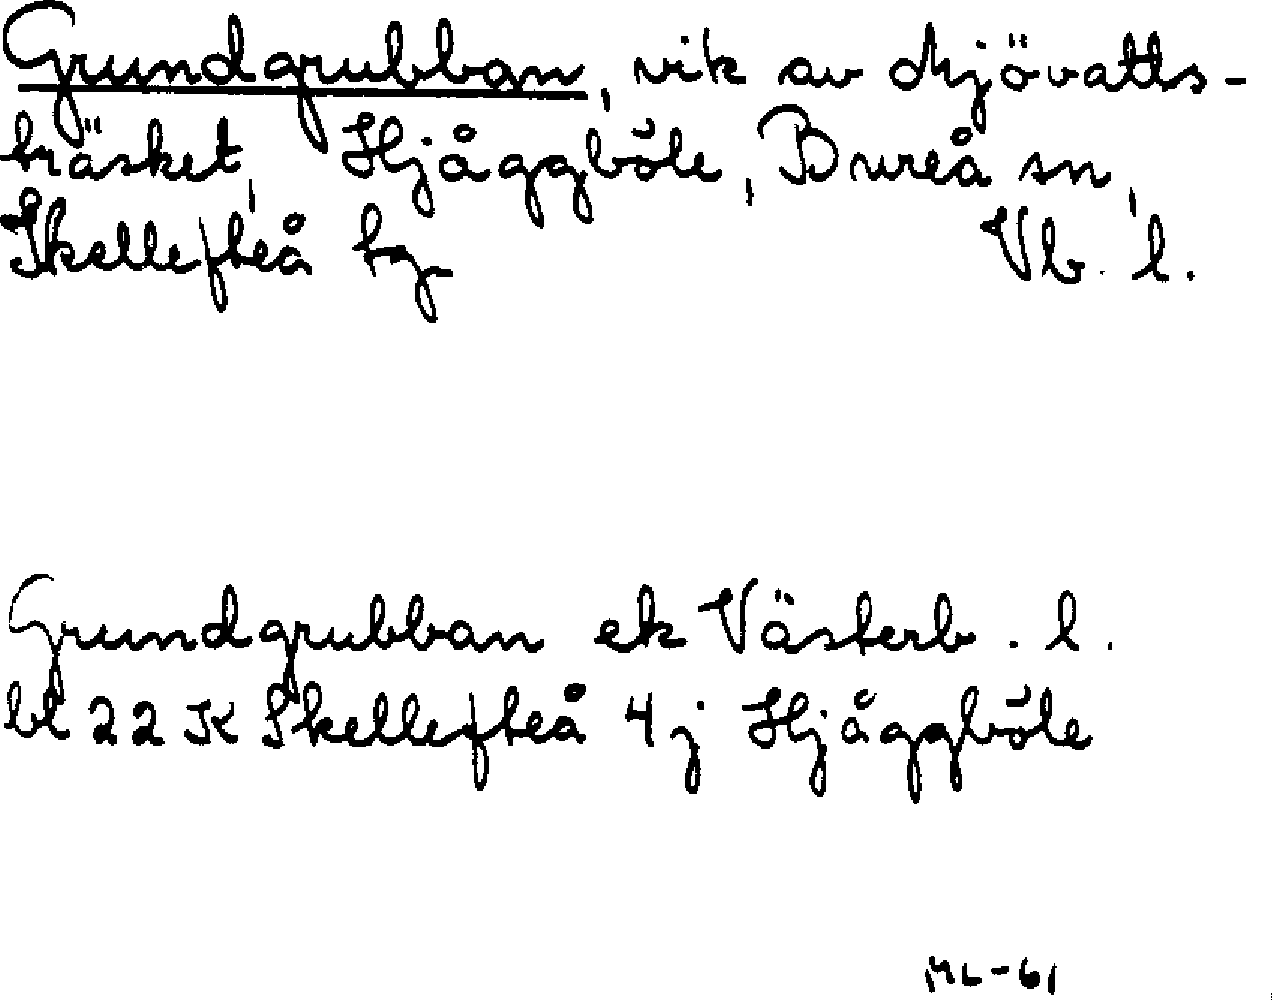 Grundgrubban, vik av Mjövatts-
träsket, Hjåggböle, Bureå sn,
Skellefteå tg Vb. l.
Grundgrubban ek Västerb. l.
bl 22 K Skellefteå 4 j Hjåggböle
ML-61